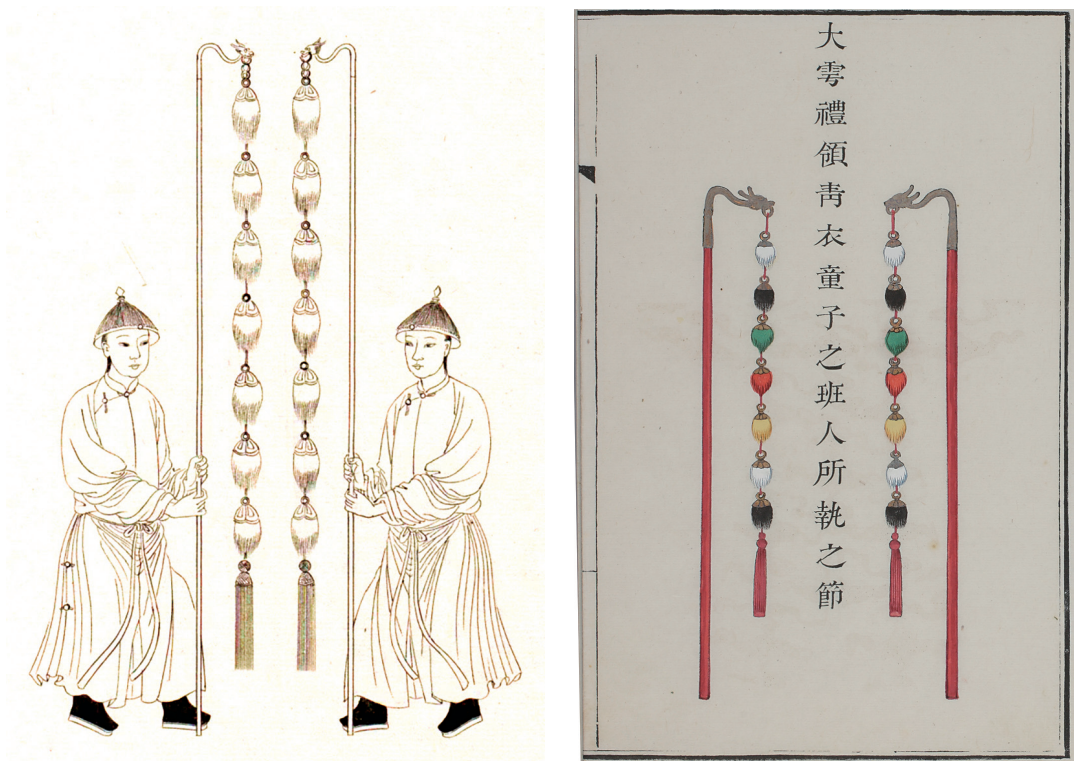 大雩禮領青衣童子之班人所執之節